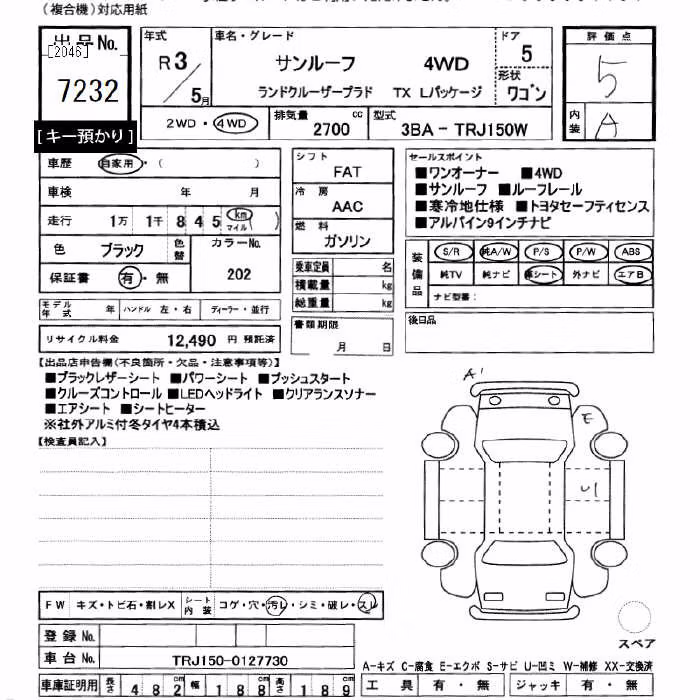 (複合機)対応用紙
出品No. 年式 車名・グレード ドア 評価点
[2046] R3/5月 サンルーフ 4WD 5 5
7232 ランドクルーザープラド TX Lパッケージ 形状 ワゴン
[キー預かり] 2WD・4WD 排気量 2700 cc 型式 3BA-TRJ150W 内装 A
車歴 自家用・( ) シフト FAT セールスポイント
■ワンオーナー ■4WD
車検 年 月 冷房 AAC ■サンルーフ ■ルーフレール
■寒冷地仕様 ■トヨタセーフティセンス
走行 1万 1千 8 4 5 km マイル ( ) 燃料 ガソリン ■アルパイン9インチナビ
色 ブラック 色替 カラーNo. 202
装備品 S/R 純A/W P/S P/W ABS
保証書 有・無 乗車定員 名 純TV 純ナビ 革シート 外ナビ エアB
積載量 kg ナビ型番:
モデル年式 年 ハンドル 左・右 ディーラー・並行 総重量 kg
リサイクル料金 12,490 円 預託済 書類期限 月 日 後日品
【出品店申告欄(不良箇所・欠品・注意事項等)】
■ブラックレザーシート ■パワーシート ■プッシュスタート
■クルーズコントロール ■LEDヘッドライト ■クリアランスソナー
■エアシート ■シートヒーター
※社外アルミ付冬タイヤ4本積込
【検査員記入】
A1
E
U1
FW キズ・トビ石・割レX シート内装 コゲ・穴・汚レ・シミ・破レ・スレ
スペア
登録No.
車台No. TRJ150-0127730
A-キズ C-腐食 E-エクボ S-サビ U-凹ミ W-補修 XX-交換済
車庫証明用 長さ 4 8 2 cm 幅 1 8 8 cm 高さ 1 8 9 cm 工具 有・無 ジャッキ 有・無